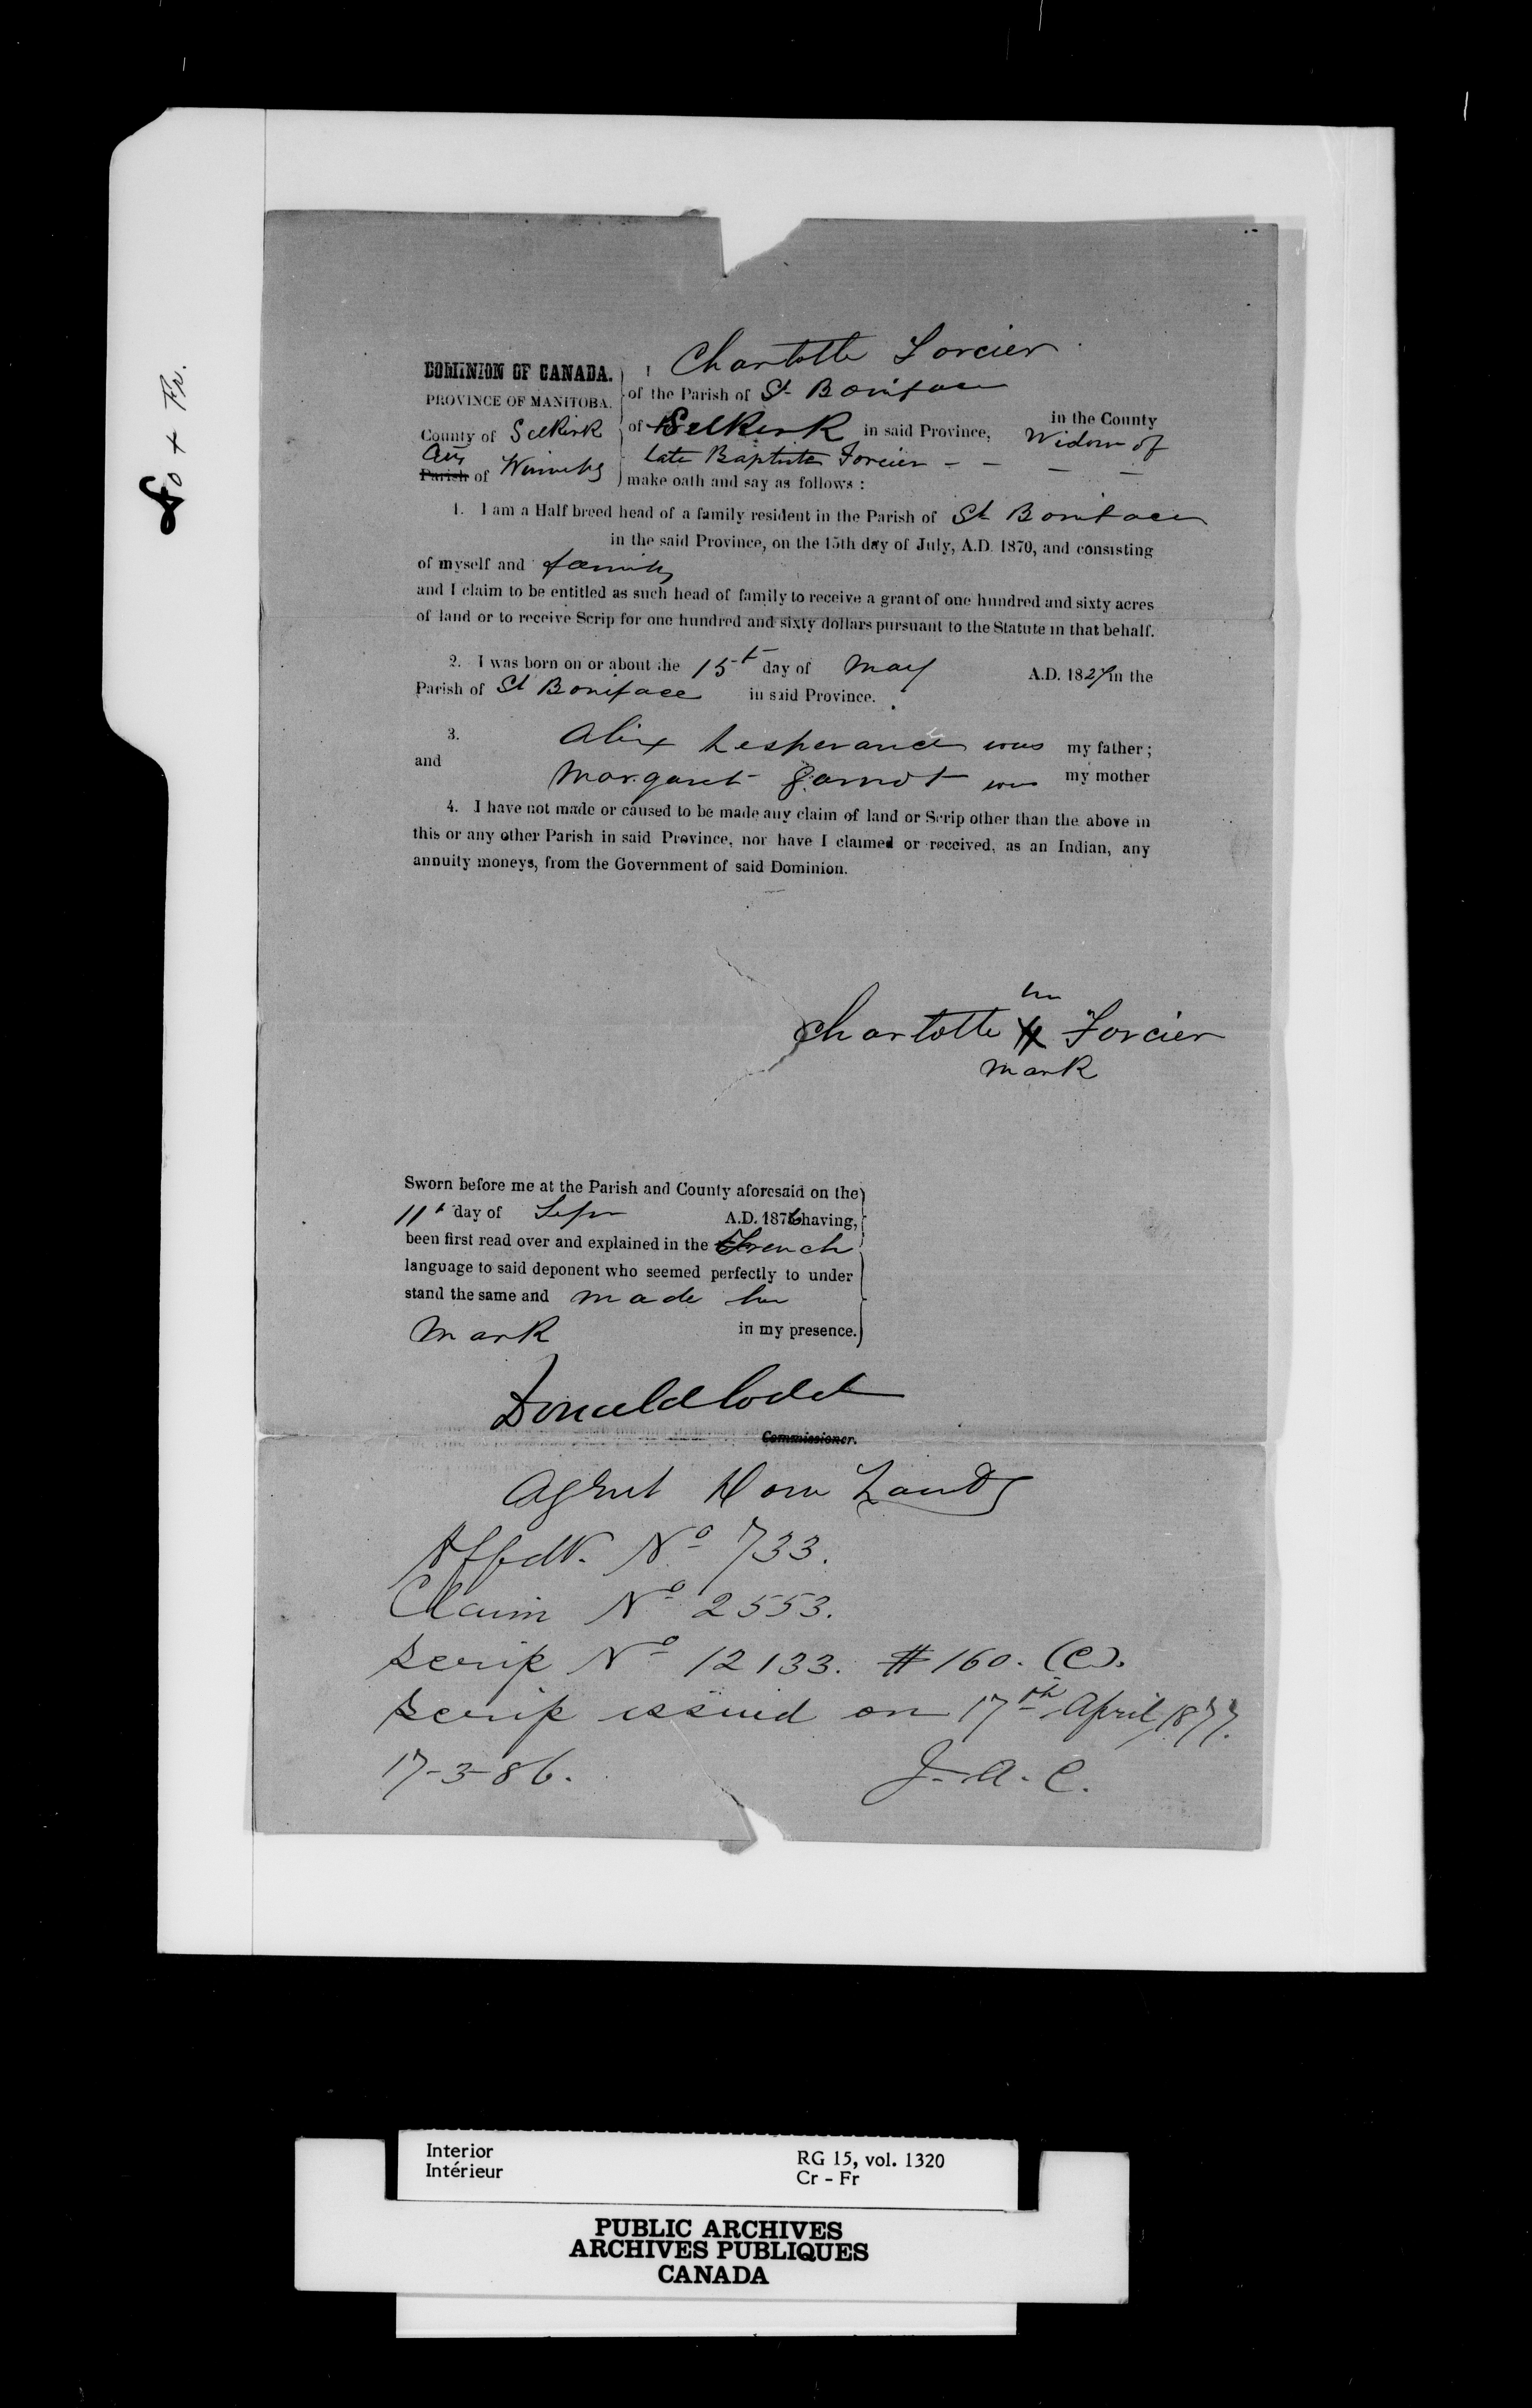 Fo + Fr.
DOMINION OF CANADA.
PROVINCE OF MANITOBA.
County of Selkirk
City
Parish of Winnipeg
I Charlotte Forcier
of the Parish of St Boniface
in the County
of Selkirk in said Province, Widow of
late Baptiste Forcier - - - -
make oath and say as follows :
1. I am a Half breed head of a family resident in the Parish of St Boniface
in the said Province, on the 15th day of July, A.D. 1870, and consisting
of myself and family
and I claim to be entitled as such head of family to receive a grant of one hundred and sixty acres
of land or to receive Scrip for one hundred and sixty dollars pursuant to the Statute in that behalf.
2. I was born on or about the 15t day of May A.D. 1827 in the
Parish of St Boniface in said Province.
3. Alix Lesperance was my father ;
and Margaret was my mother
4. I have not made or caused to be made any claim of land or Scrip other than the above in
this or any other Parish in said Province, nor have I claimed or received, as an Indian, any
annuity moneys, from the Government of said Dominion.
her
Charlotte X Forcier
mark
Sworn before me at the Parish and County aforesaid on the
11t day of Sepr A.D. 1876 having,
been first read over and explained in the French
language to said deponent who seemed perfectly to under
stand the same and made her
mark in my presence.
Donald Codd
Commissioner.
Agent Dom Lands
Affdt. No 733.
Claim No 2553.
Scrip No 12133. $160. (C).
Scrip issued on 17th April, 1877.
17-3-86. J.A.C.
Interior
Intérieur
RG 15, vol. 1320
Cr - Fr
PUBLIC ARCHIVES
ARCHIVES PUBLIQUES
CANADA